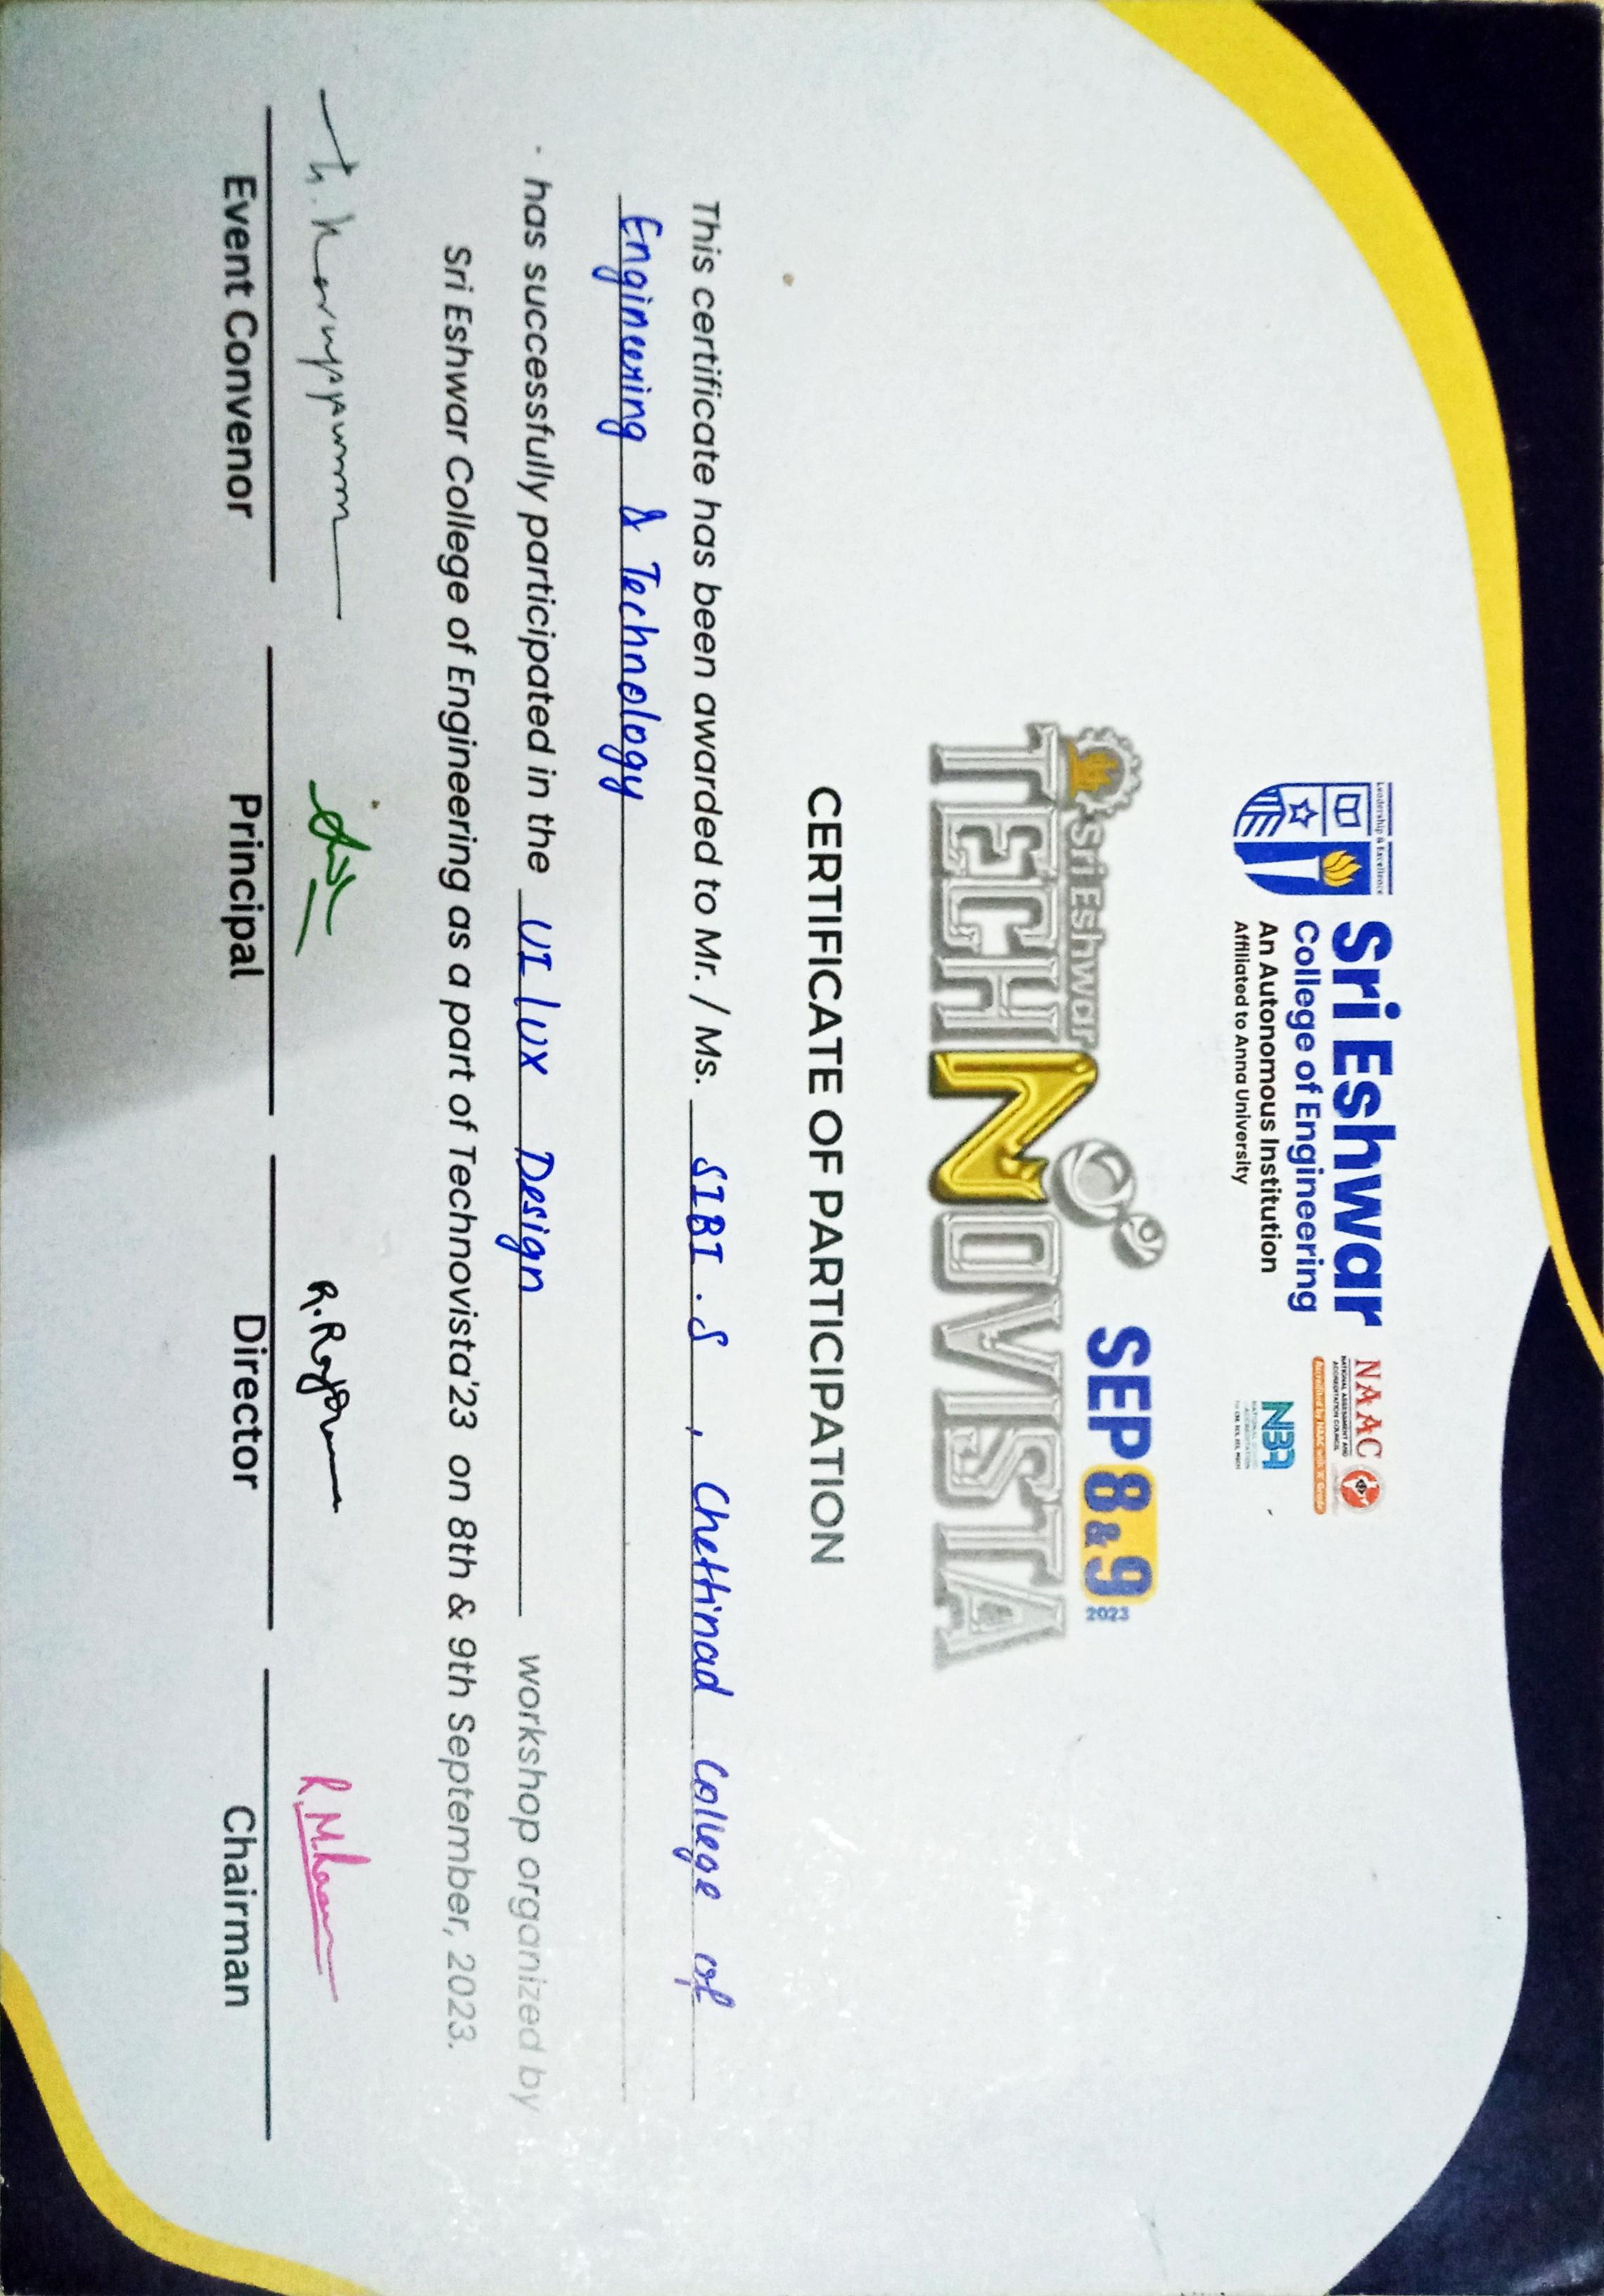 Leadership & Excellence
Sri Eshwar
College of Engineering
An Autonomous Institution
Affiliated to Anna University
NAAC
NATIONAL ASSESSMENT AND
ACCREDITATION COUNCIL
Accredited by NAAC with 'A' Grade
NBA
NATIONAL BOARD
ACCREDITATION
SEP 8 & 9 2023
Sri Eshwar
TECHNOVISTA
CERTIFICATE OF PARTICIPATION
This certificate has been awarded to Mr. / Ms. SIBI . S , Chettinad College of
Engineering & Technology
has successfully participated in the UI / UX Design workshop organized by
Sri Eshwar College of Engineering as a part of Technovista'23 on 8th & 9th September, 2023.
Event Convenor
Principal
Director
Chairman